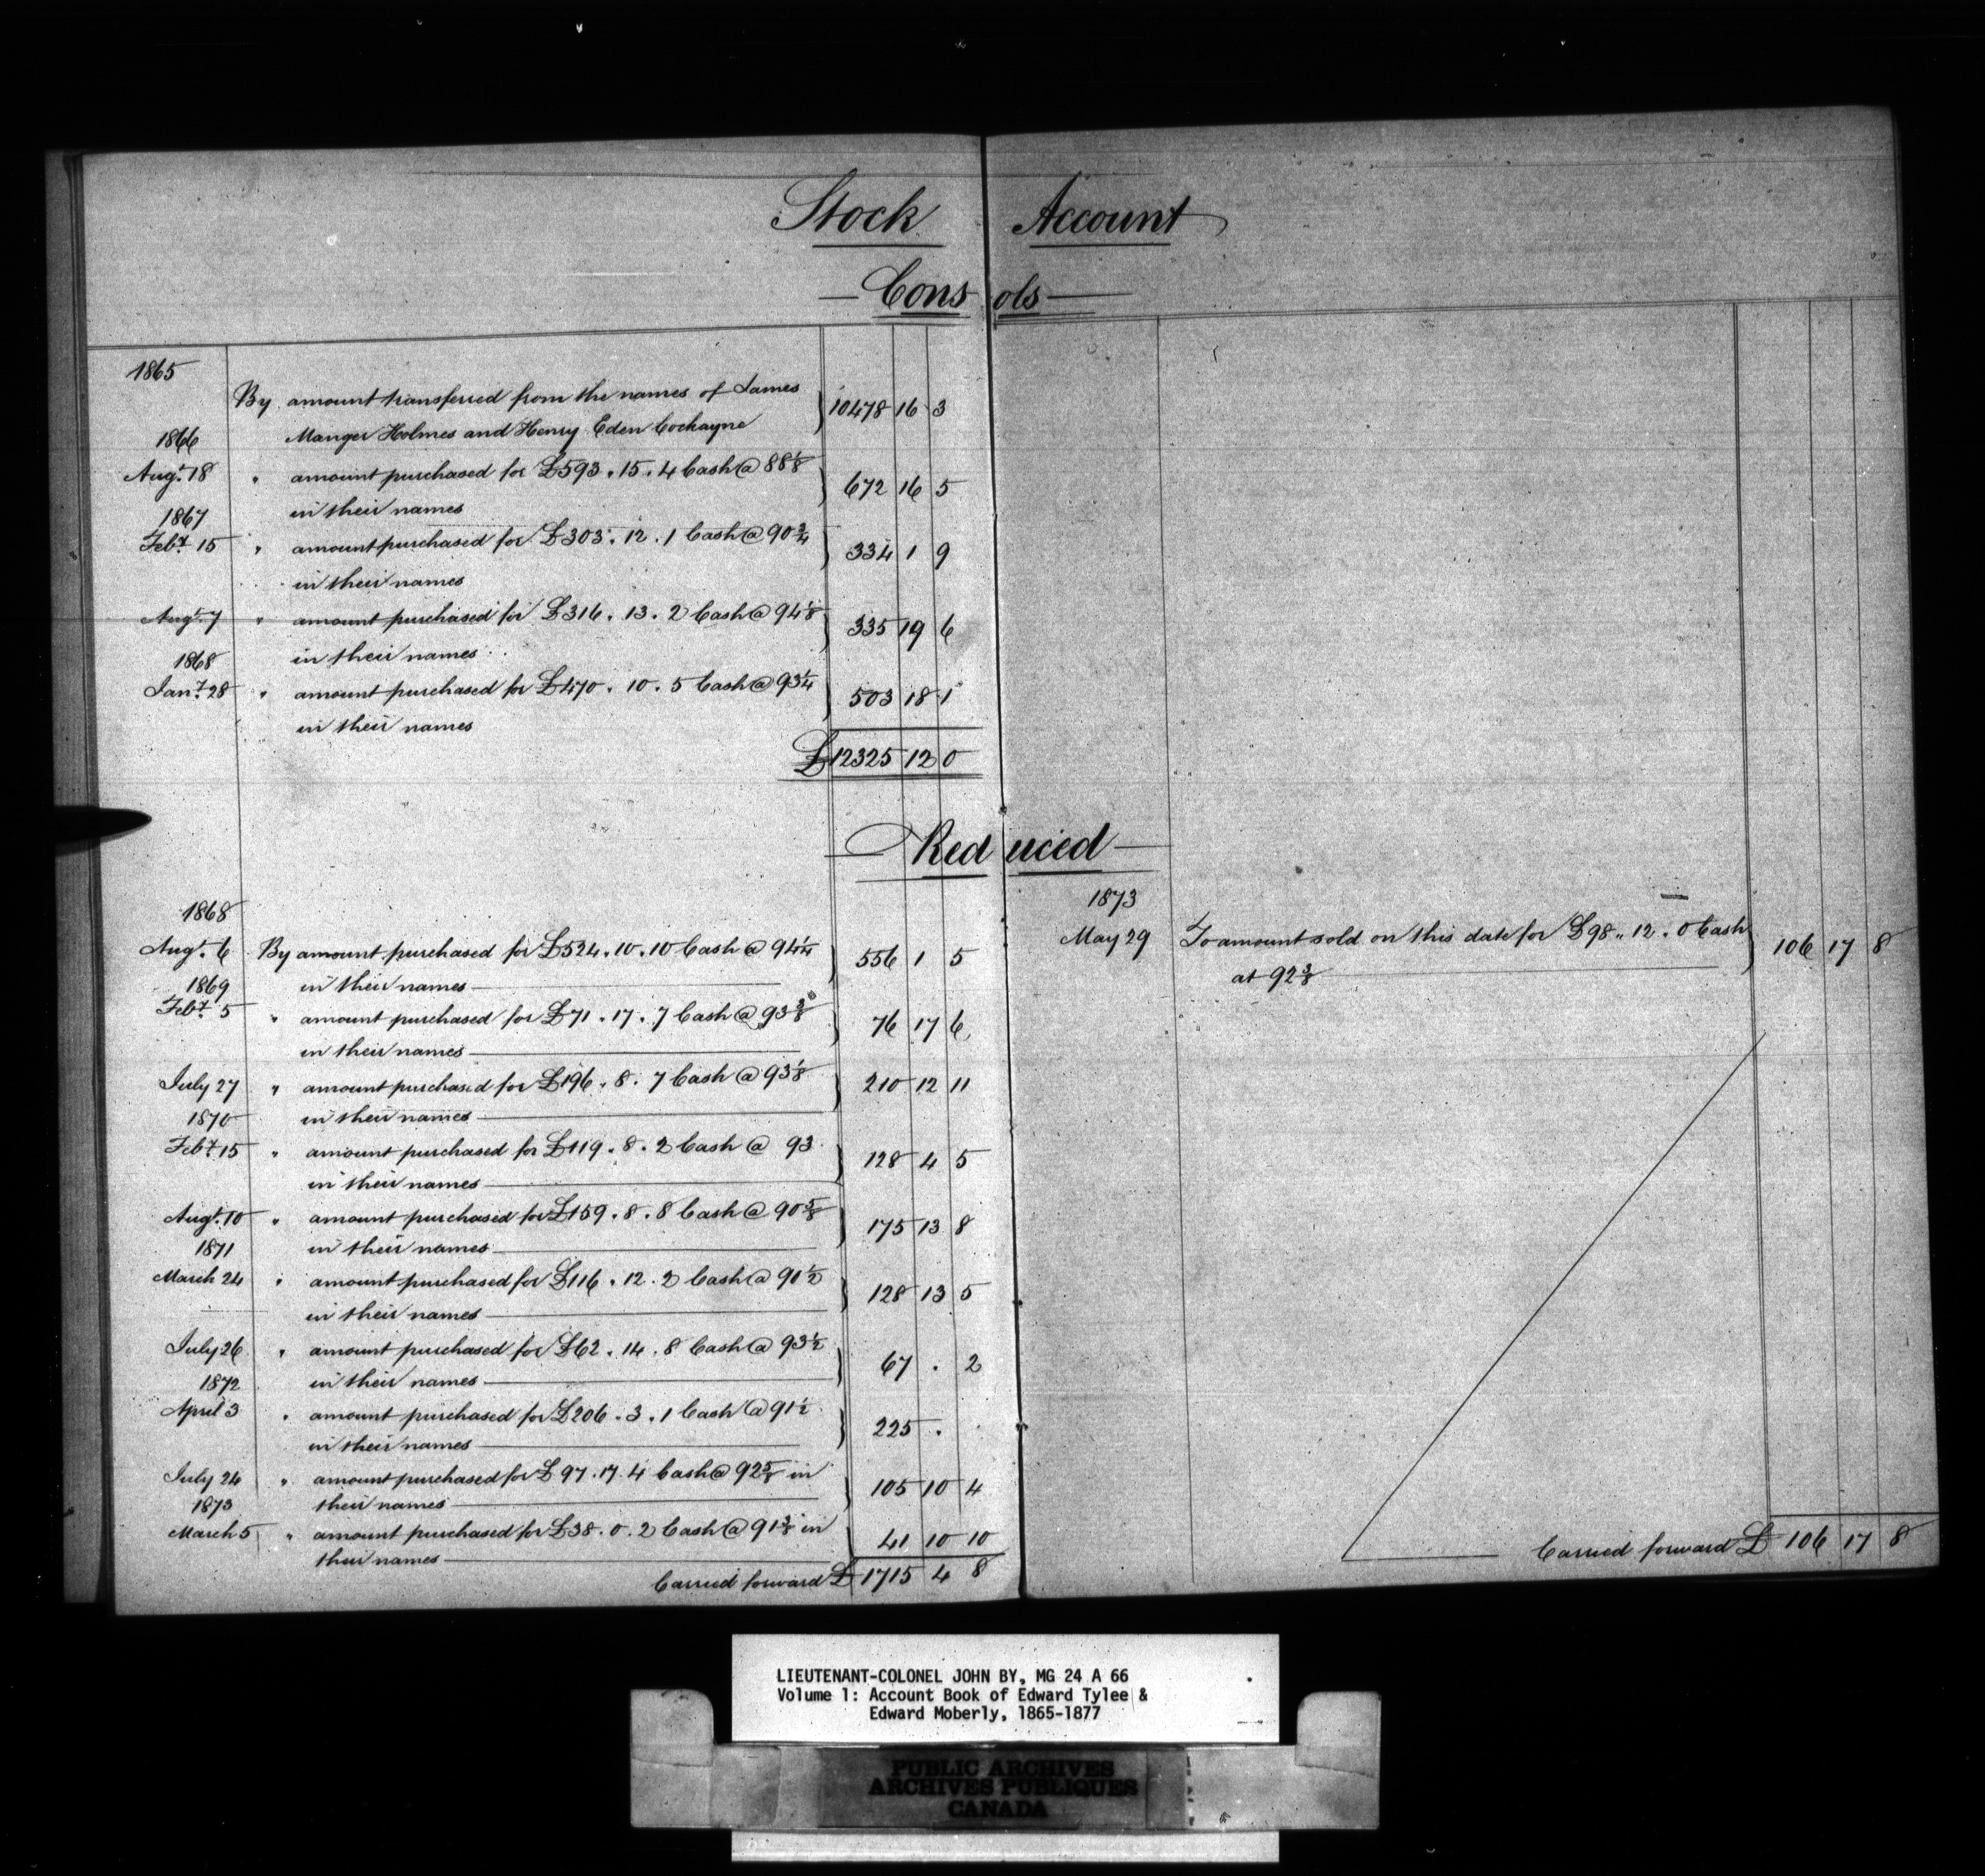 Stock Account
— Consols —
1865
By amount transferred from the names of James
1866 Manger Holmes and Henry Eden Cockayne } 10478 16 3
Augt. 18 " amount purchased for £593 . 15 . 4 Cash @ 88 1/8
1867 in their names } 672 16 5
Feby. 15 " amount purchased for £303 . 12 . 1 Cash @ 90 3/4
in their names } 334 1 9
Augt. 7 " amount purchased for £316 . 13 . 2 Cash @ 94 1/8
1868 in their names } 335 19 6
Jany. 28 " amount purchased for £470 . 10 . 5 Cash @ 93 1/4
in their names } 503 18 1
£12325 12 0
— Reduced —
1868
Augt. 6 By amount purchased for £524 . 10 . 10 Cash @ 94 1/4
1869 in their names } 556 1 5
Feby. 5 " amount purchased for £71 . 17 . 7 Cash @ 93 3/8
in their names } 76 17 6
July 27 " amount purchased for £196 . 8 . 7 Cash @ 93 1/8
1870 in their names } 210 12 11
Feby. 15 " amount purchased for £119 . 8 . 2 Cash @ 93
in their names } 128 4 5
Augt. 10 " amount purchased for £159 . 8 . 8 Cash @ 90 5/8
1871 in their names } 175 13 8
March 24 " amount purchased for £116 . 12 . 2 Cash @ 90 1/2
in their names } 128 13 5
July 26 " amount purchased for £62 . 14 . 8 Cash @ 93 1/2
1872 in their names } 67 . 2
April 3 " amount purchased for £206 . 3 . 1 Cash @ 91 1/2
in their names } 225 .
July 24 " amount purchased for £97 . 17 . 4 Cash @ 92 5/8 in
1873 their names } 105 10 4
March 5 " amount purchased for £38 . 0 . 2 Cash @ 91 3/8 in
their names } 41 10 10
Carried forward £ 1715 4 8
1873
May 29 To amount sold on this date for £98 .. 12 . 0 Cash
at 92 3/8 } 106 17 8
Carried forward £ 106 17 8
LIEUTENANT-COLONEL JOHN BY, MG 24 A 66
Volume 1: Account Book of Edward Tylee &
Edward Moberly, 1865-1877
PUBLIC ARCHIVES
ARCHIVES PUBLIQUES
CANADA